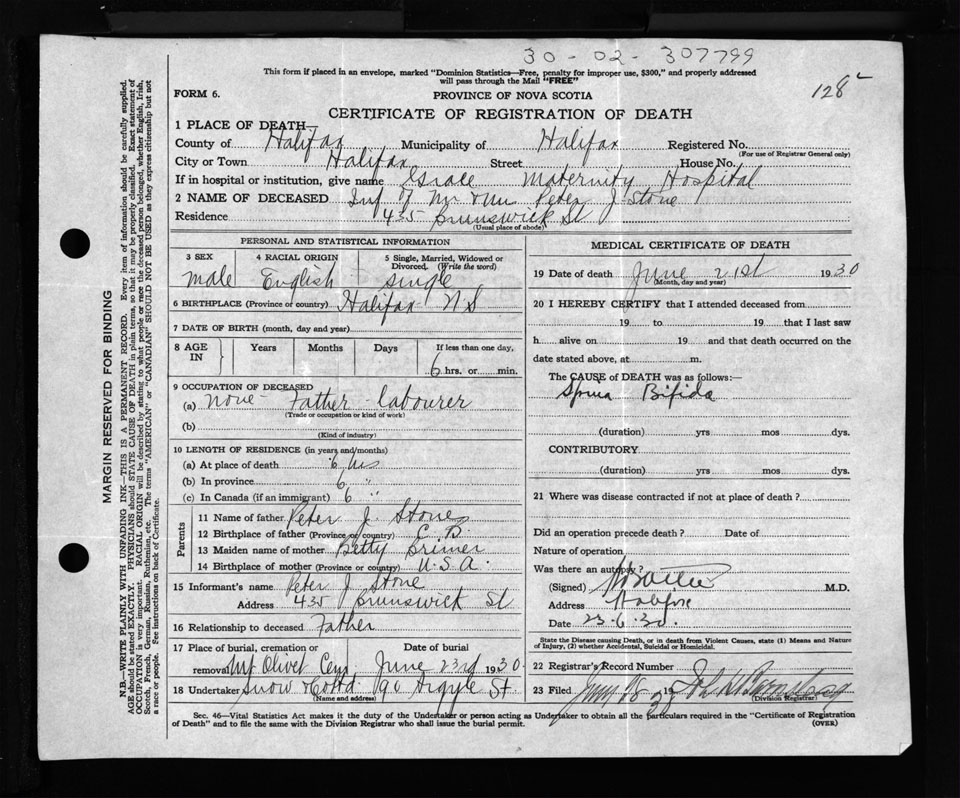 30-02-307799
This form if placed in an envelope, marked "Dominion Statistics—Free, penalty for improper use, $300," and properly addressed
will pass through the Mail "FREE"
FORM 6.
PROVINCE OF NOVA SCOTIA
128
CERTIFICATE OF REGISTRATION OF DEATH
1 PLACE OF DEATH—
County of Halifax Municipality of Halifax Registered No.
(For use of Registrar General only)
City or Town Halifax Street House No.
If in hospital or institution, give name Grace Maternity Hospital
2 NAME OF DECEASED Inf of Mr & Mrs Peter J. Stone
Residence 435 Brunswick St
(Usual place of abode)
PERSONAL AND STATISTICAL INFORMATION
3 SEX 4 RACIAL ORIGIN 5 Single, Married, Widowed or
Divorced. (Write the word)
male English single
6 BIRTHPLACE (Province or country) Halifax N S
7 DATE OF BIRTH (month, day and year)
8 AGE IN Years Months Days If less than one day,
6 hrs. or min.
9 OCCUPATION OF DECEASED
(a) none Father - labourer
(Trade or occupation or kind of work)
(b)
(Kind of industry)
10 LENGTH OF RESIDENCE (in years and months)
(a) At place of death 6 hrs
(b) In province 6 "
(c) In Canada (if an immigrant) 6 "
Parents
11 Name of father Peter J. Stone
12 Birthplace of father (Province or country) C. B.
13 Maiden name of mother Betty
14 Birthplace of mother (Province or country) U.S.A.
15 Informant's name Peter J Stone
Address 435 Brunswick St
16 Relationship to deceased Father
17 Place of burial, cremation or removal Mt Olivet Cem
Date of burial June 23rd 1930
18 Undertaker Snow & Co Ltd 90 Argyle St
(Name and address)
MEDICAL CERTIFICATE OF DEATH
19 Date of death June 21st 1930
(Month, day and year)
20 I HEREBY CERTIFY that I attended deceased from
19 to 19 that I last saw
h alive on 19 and that death occurred on the
date stated above, at m.
The CAUSE of DEATH was as follows:—
Spina Bifida
(duration) yrs mos dys.
CONTRIBUTORY
(duration) yrs mos dys.
21 Where was disease contracted if not at place of death ?
Did an operation precede death ? Date of
Nature of operation
Was there an autopsy ?
(Signed) M.D.
Address Halifax
Date 23.6.30.
State the Disease causing Death, or in death from Violent Causes, state (1) Means and Nature
of Injury, (2) whether Accidental, Suicidal or Homicidal.
22 Registrar's Record Number
23 Filed 19
(Division Registrar)
Sec. 46—Vital Statistics Act makes it the duty of the Undertaker or person acting as Undertaker to obtain all the particulars required in the "Certificate of Registration
of Death" and to file the same with the Division Registrar who shall issue the burial permit.
(OVER)
MARGIN RESERVED FOR BINDING
N.B.—WRITE PLAINLY WITH UNFADING INK—THIS IS A PERMANENT RECORD. Every item of information should be carefully supplied.
AGE should be stated EXACTLY. PHYSICIANS should STATE CAUSE OF DEATH in plain terms, so that it may be properly classified. Exact statement of
OCCUPATION is very important. RACIAL ORIGIN will be described by stating to what people or race the deceased person belonged, whether English, Irish,
Scotch, French, German, Russian, Ruthenian, etc. The terms "AMERICAN" or "CANADIAN" SHOULD NOT BE USED as they express citizenship but not
a race or people. See instructions on back of Certificate.